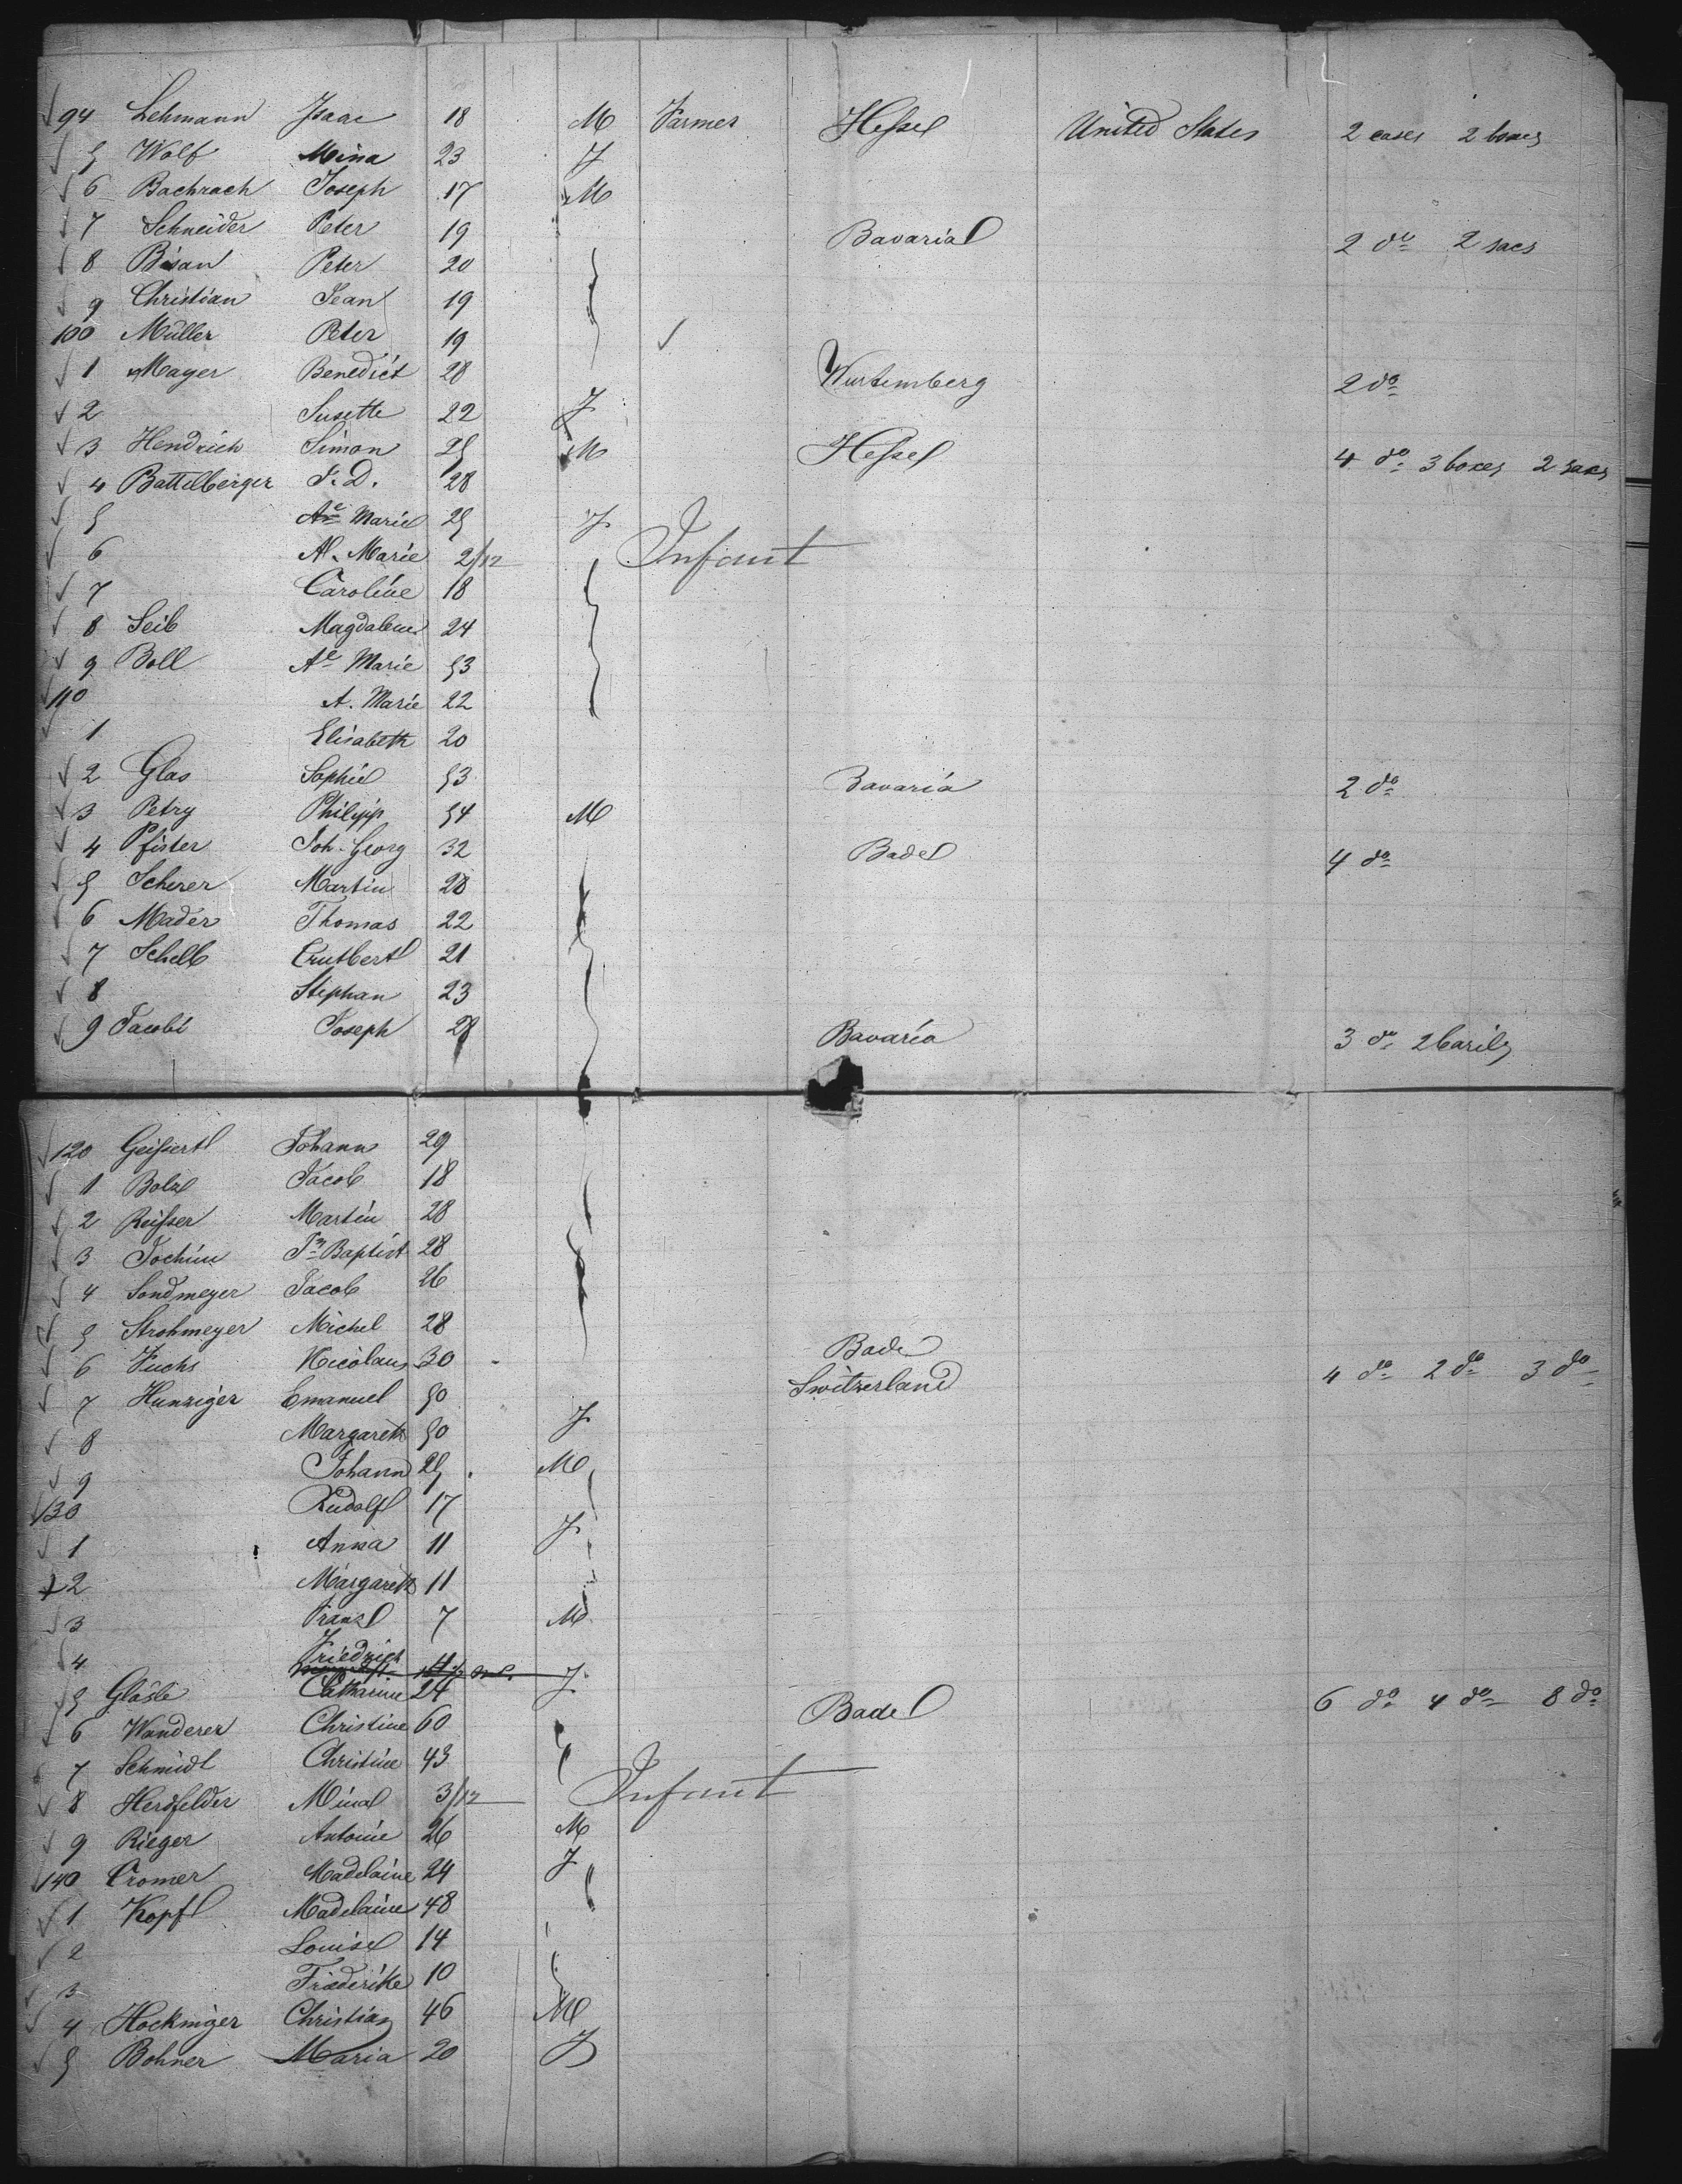 94 Lehmann Isaac 18 M Farmer Hesse United States 2 cases 2 boxes
5 Wolf Mina 23 F
6 Bachrach Joseph 17 M
7 Schneider Peter 19 Bavaria 2 do 2 sacs
8 Bisan Peter 20
9 Christian Jean 19
100 Müller Peter 19
1 Mayer Benedict 28 Wurtemberg 2 do
2 Susette 22 F
3 Hendrich Simon 25 M Hesse 4 do 3 boxes 2 sacs
4 Battelberger F. D. 28
5 Ae Marie 25 F
6 Al. Marie 2/12 Infant
7 Caroline 18
8 Seib Magdalene 24
9 Boll Ae Marie 53
110 A. Marie 22
1 Elisabeth 20
2 Glas Sophie 53 Bavaria 2 do
3 Petry Philipp 54 M
4 Pfister Joh. Georg 32 Bade 4 do
5 Scherer Martin 28
6 Mader Thomas 22
7 Schelb 21
8 Stephan 23
9 Jacobi Joseph 28 Bavaria 3 do 2 barils
120 Geissert Johann 29
1 Bolz Jacob 18
2 Reisser Martin 28
3 Jochim Jn Baptist 28
4 Sondmeyer Jacob 26
5 Strohmeyer Michel 28
6 Fuchs Nicolaus 30 Bade 4 do 2 do 3 do
7 Hunziger Emanuel 50 Switzerland
8 Margareth 50 F
9 Johann 25 M
130 Rudolf 17
1 Anna 11 F
2 Margareth 11
3 Franz 7 M
4 Friedrich 4
5 Gläsle Catharine 24 F Bade 6 do 4 do 8 do
6 Wanderer Christine 60
7 Schmidt Christine 43
8 Herdfelder Mina 3/12 Infant
9 Rieger Antoine 26 M
140 Cromer Madelaine 24 F
1 Kopf Madelaine 48
2 Louise 14
3 Friederike 10
4 Hockinger Christian 46 M
5 Bohner Maria 20 F